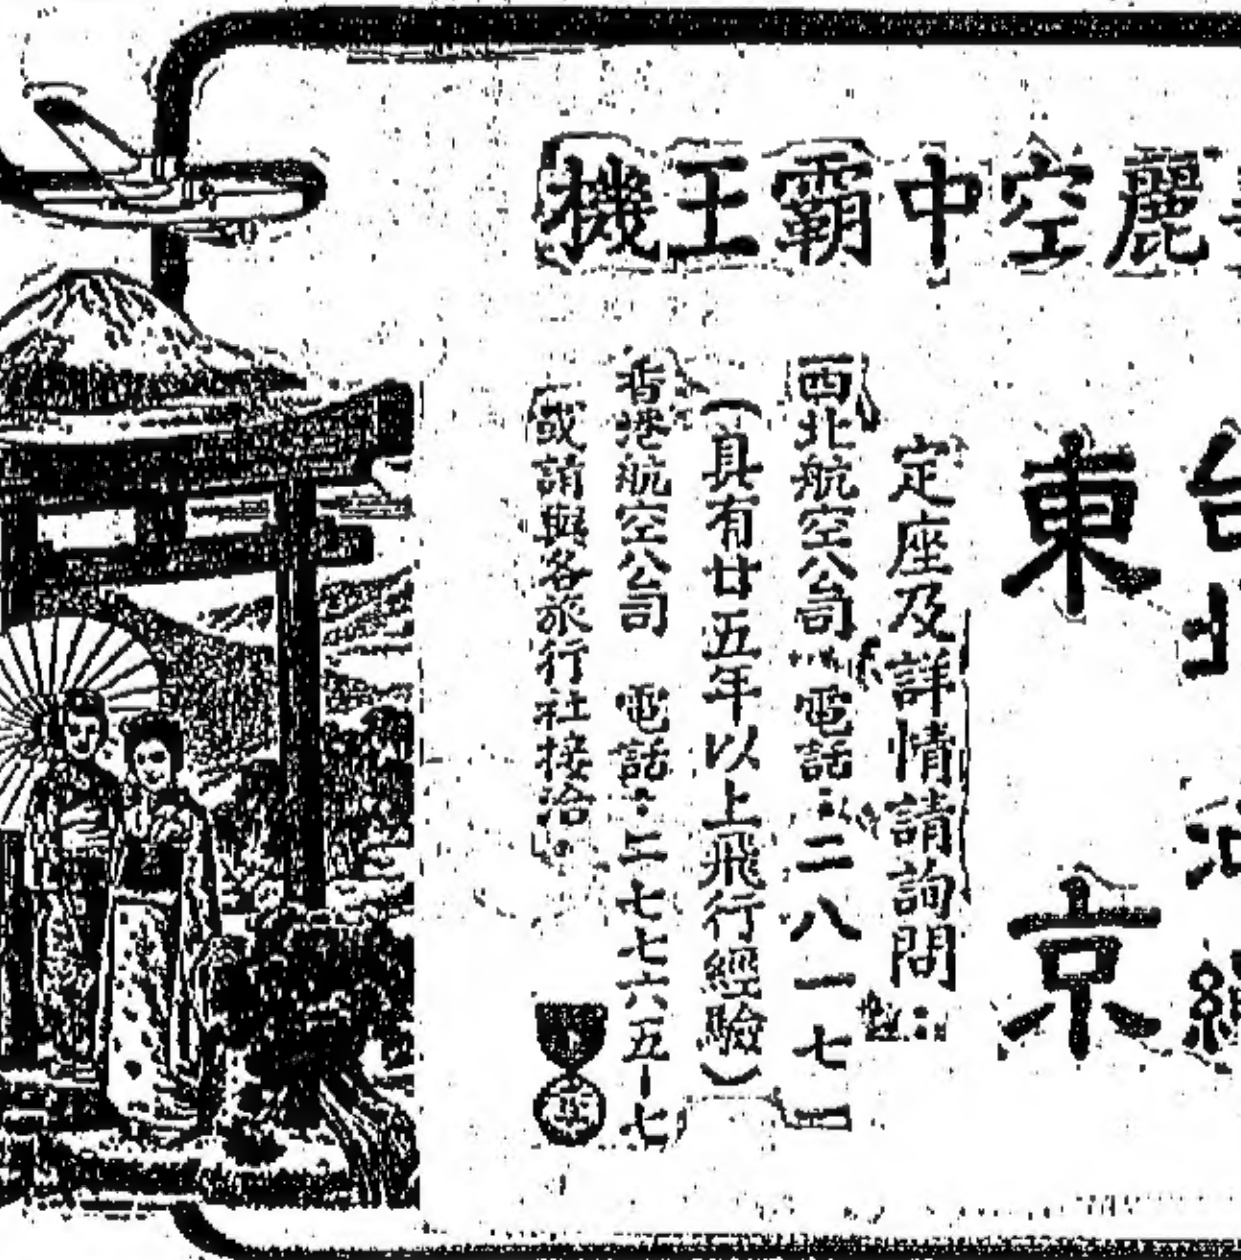 麗空中霸王機
東京
定座及詳情請詢問：
西北航空公司 電話：二八一七
（具有廿五年以上飛行經驗）
香港航空公司 電話：二七七六五－七
或請與各旅行社接洽。